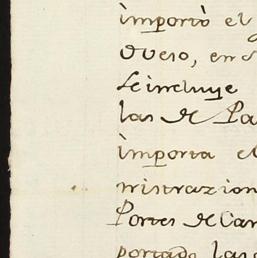 importó el
dueso, en
se incluye
las de Pa
importa el
nistrazion
Portes de Car
portado las